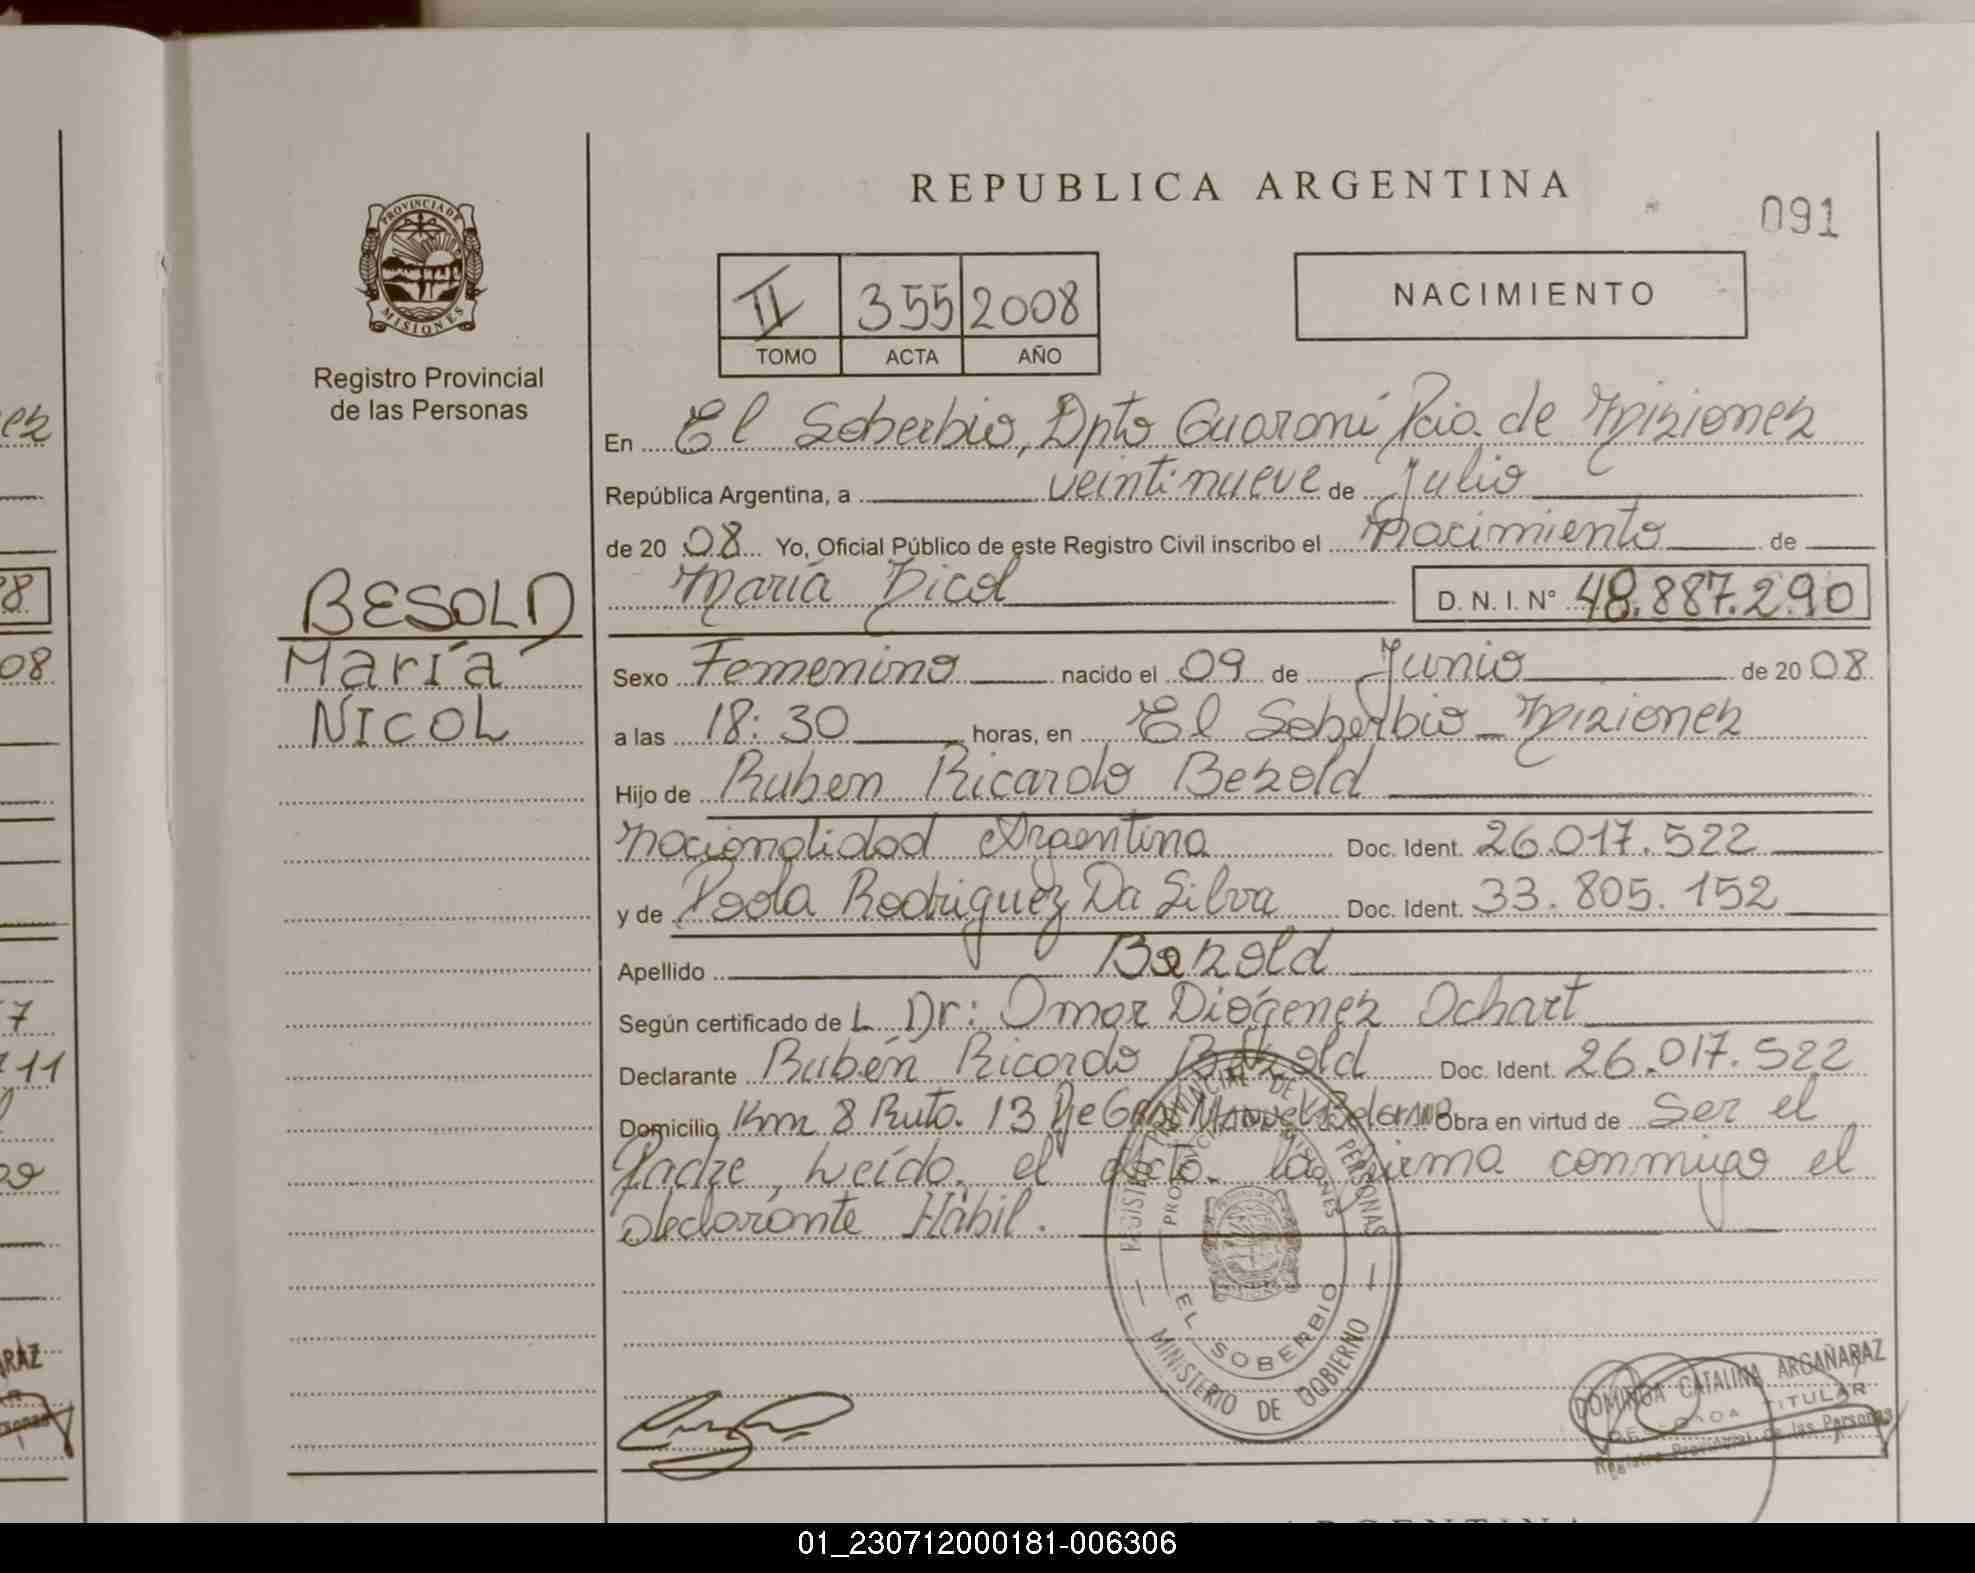 REPUBLICA ARGENTINA
091
PROVINCIA DE
MISIONES
Registro Provincial
de las Personas
II 355 2008
TOMO ACTA AÑO
NACIMIENTO
En El Soberbio, Dpto Guaraní Pcia. de Misiones
República Argentina, a veintinueve de Julio
de 20 08 Yo, Oficial Público de este Registro Civil inscribo el Nacimiento de
María Nicol D. N. I. N° 48.887.290
BESOLD
María
NICOL
Sexo Femenino nacido el 09 de Junio de 20 08
a las 18:30 horas, en El Soberbio - Misiones
Hijo de Ruben Ricardo Besold
nacionalidad Argentina Doc. Ident. 26.017.522
y de Paola Rodriguez Da Silva Doc. Ident. 33.805.152
Apellido Besold
Según certificado de L Dr: Omar Diógenes Ochart
Declarante Rubén Ricardo Besold Doc. Ident. 26.017.522
Domicilio Km 8 Ruta. 13 Manuel Belgrano Obra en virtud de Ser el
Padre, Leído el acta, la firma conmigo el
declarante Hábil.
REGISTRO PROVINCIAL DE LAS PERSONAS
PROVINCIA DE MISIONES
EL SOBERBIO
MINISTERIO DE GOBIERNO
DOMINGA CATALINA ARGAÑARAZ
DELEGADA TITULAR
Registro Provincial de las Personas
01_230712000181-006306